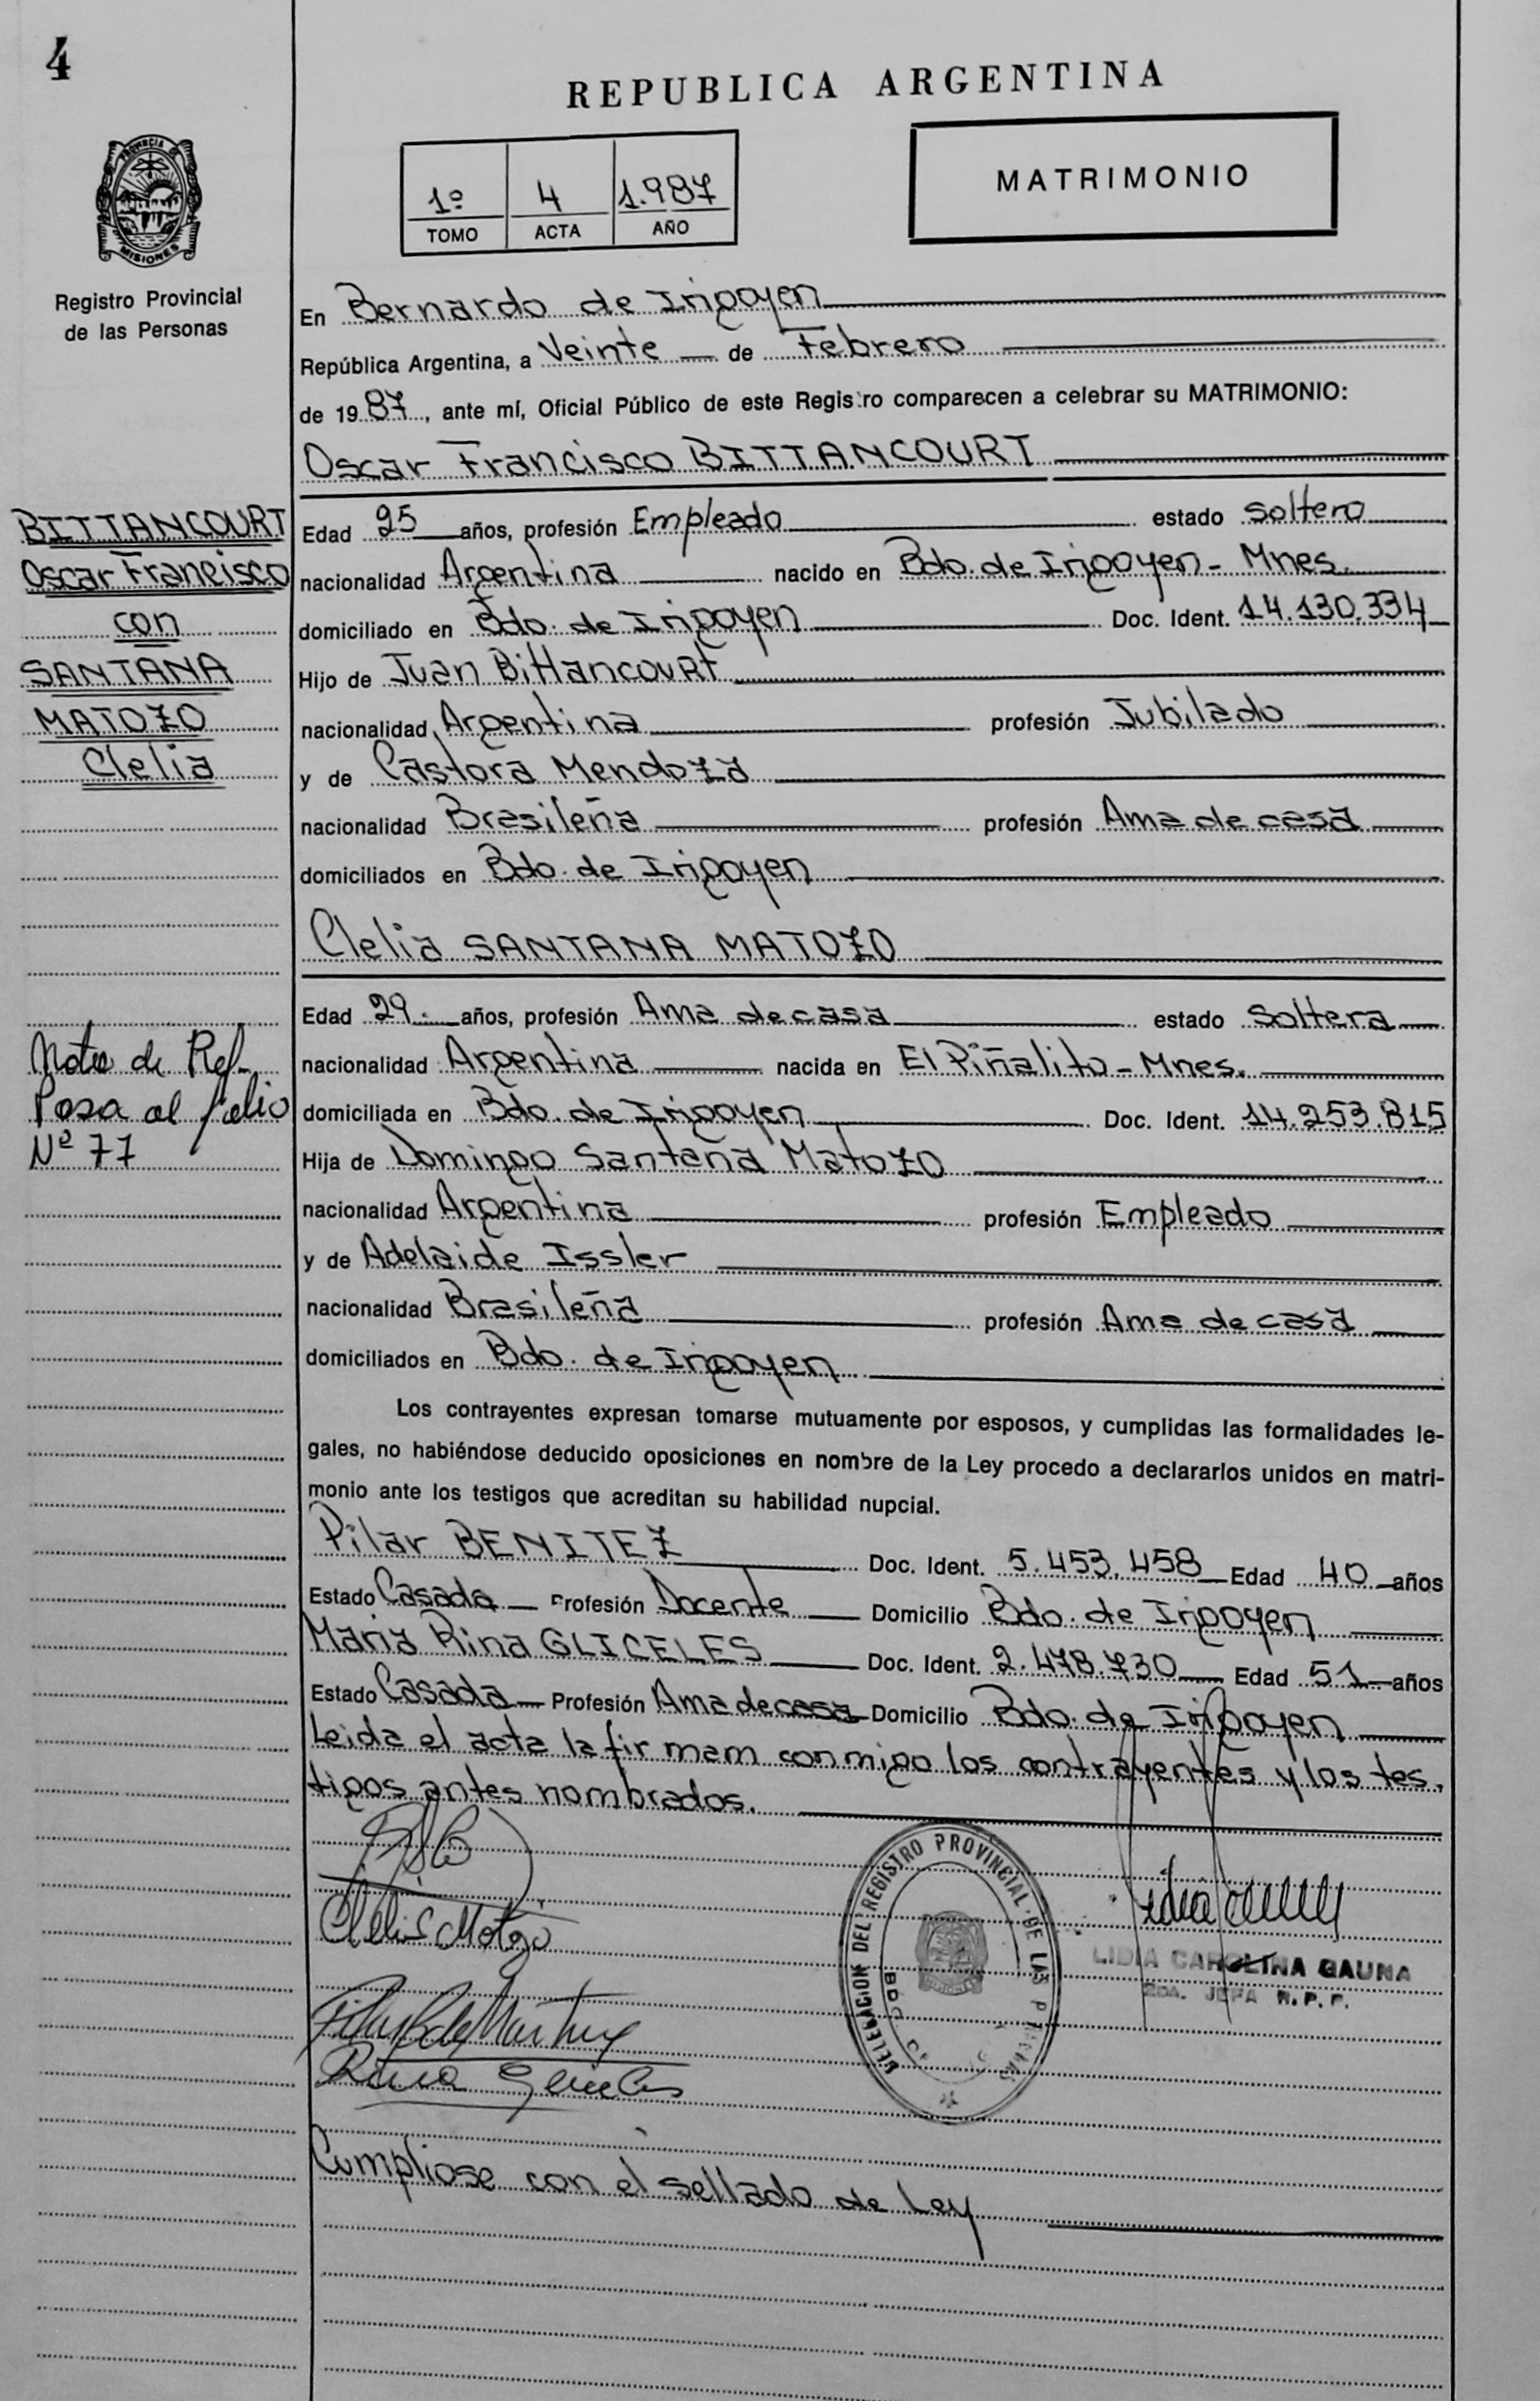 4
REPUBLICA ARGENTINA
1º 4 1.987
TOMO ACTA AÑO
MATRIMONIO
PROVINCIA DE
MISIONES
Registro Provincial
de las Personas
En Bernardo de Irigoyen
República Argentina, a Veinte de Febrero
de 1987, ante mí, Oficial Público de este Registro comparecen a celebrar su MATRIMONIO:
Oscar Francisco BITTANCOURT
BITTANCOURT
Oscar Francisco
con
SANTANA
MATOZO
Clelia
Edad 25 años, profesión Empleado estado Soltero
nacionalidad Argentina nacido en Bdo. de Irigoyen - Mnes.
domiciliado en Bdo. de Irigoyen Doc. Ident. 14.130.334
Hijo de Juan Bittancourt
nacionalidad Argentina profesión Jubilado
y de Castora Mendoza
nacionalidad Brasileña profesión Ama de casa
domiciliados en Bdo. de Irigoyen
Clelia SANTANA MATOZO
Edad 29 años, profesión Ama de casa estado Soltera
nacionalidad Argentina nacida en El Piñalito - Mnes.
domiciliada en Bdo. de Irigoyen Doc. Ident. 14.253.815
Hija de Domingo Santana Matozo
nacionalidad Argentina profesión Empleado
y de Adelaide Issler
nacionalidad Brasileña profesión Ama de casa
domiciliados en Bdo. de Irigoyen
Nota de Ref.
Pasa al folio
Nº 77
Los contrayentes expresan tomarse mutuamente por esposos, y cumplidas las formalidades le-
gales, no habiéndose deducido oposiciones en nombre de la Ley procedo a declararlos unidos en matri-
monio ante los testigos que acreditan su habilidad nupcial.
Pilar BENITEZ Doc. Ident. 5.453.458 Edad 40 años
Estado Casada Profesión Docente Domicilio Bdo. de Irigoyen
Maria Rina GLICELES Doc. Ident. 2.478.730 Edad 51 años
Estado Casada Profesión Ama de casa Domicilio Bdo. de Irigoyen
Leida el acta la firmam conmigo los contrayentes y los tes.
tigos antes nombrados.
Clelia S Matozo
DELEGACION DEL REGISTRO PROVINCIAL DE LAS
LIDIA CAROLINA GAUNA
2DA. JEFA R.P.P.
Rina Gliceles
Cumpliose con el sellado de Ley